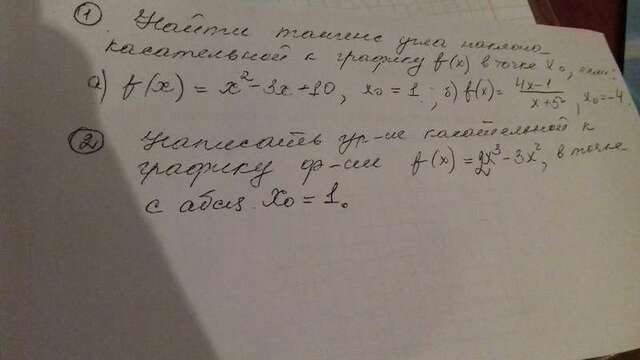 ① Найти тангенс угла наклона
касательной к графику f(x) в точке x₀, если:
а) f(x) = x² - 3x + 10, x₀ = 1; б) f(x) = (4x-1)/(x+5), x₀ = -4
② Написать ур-ие касательной к
графику ф-ии f(x) = 2x³ - 3x², в точке
с абсц. x₀ = 1.